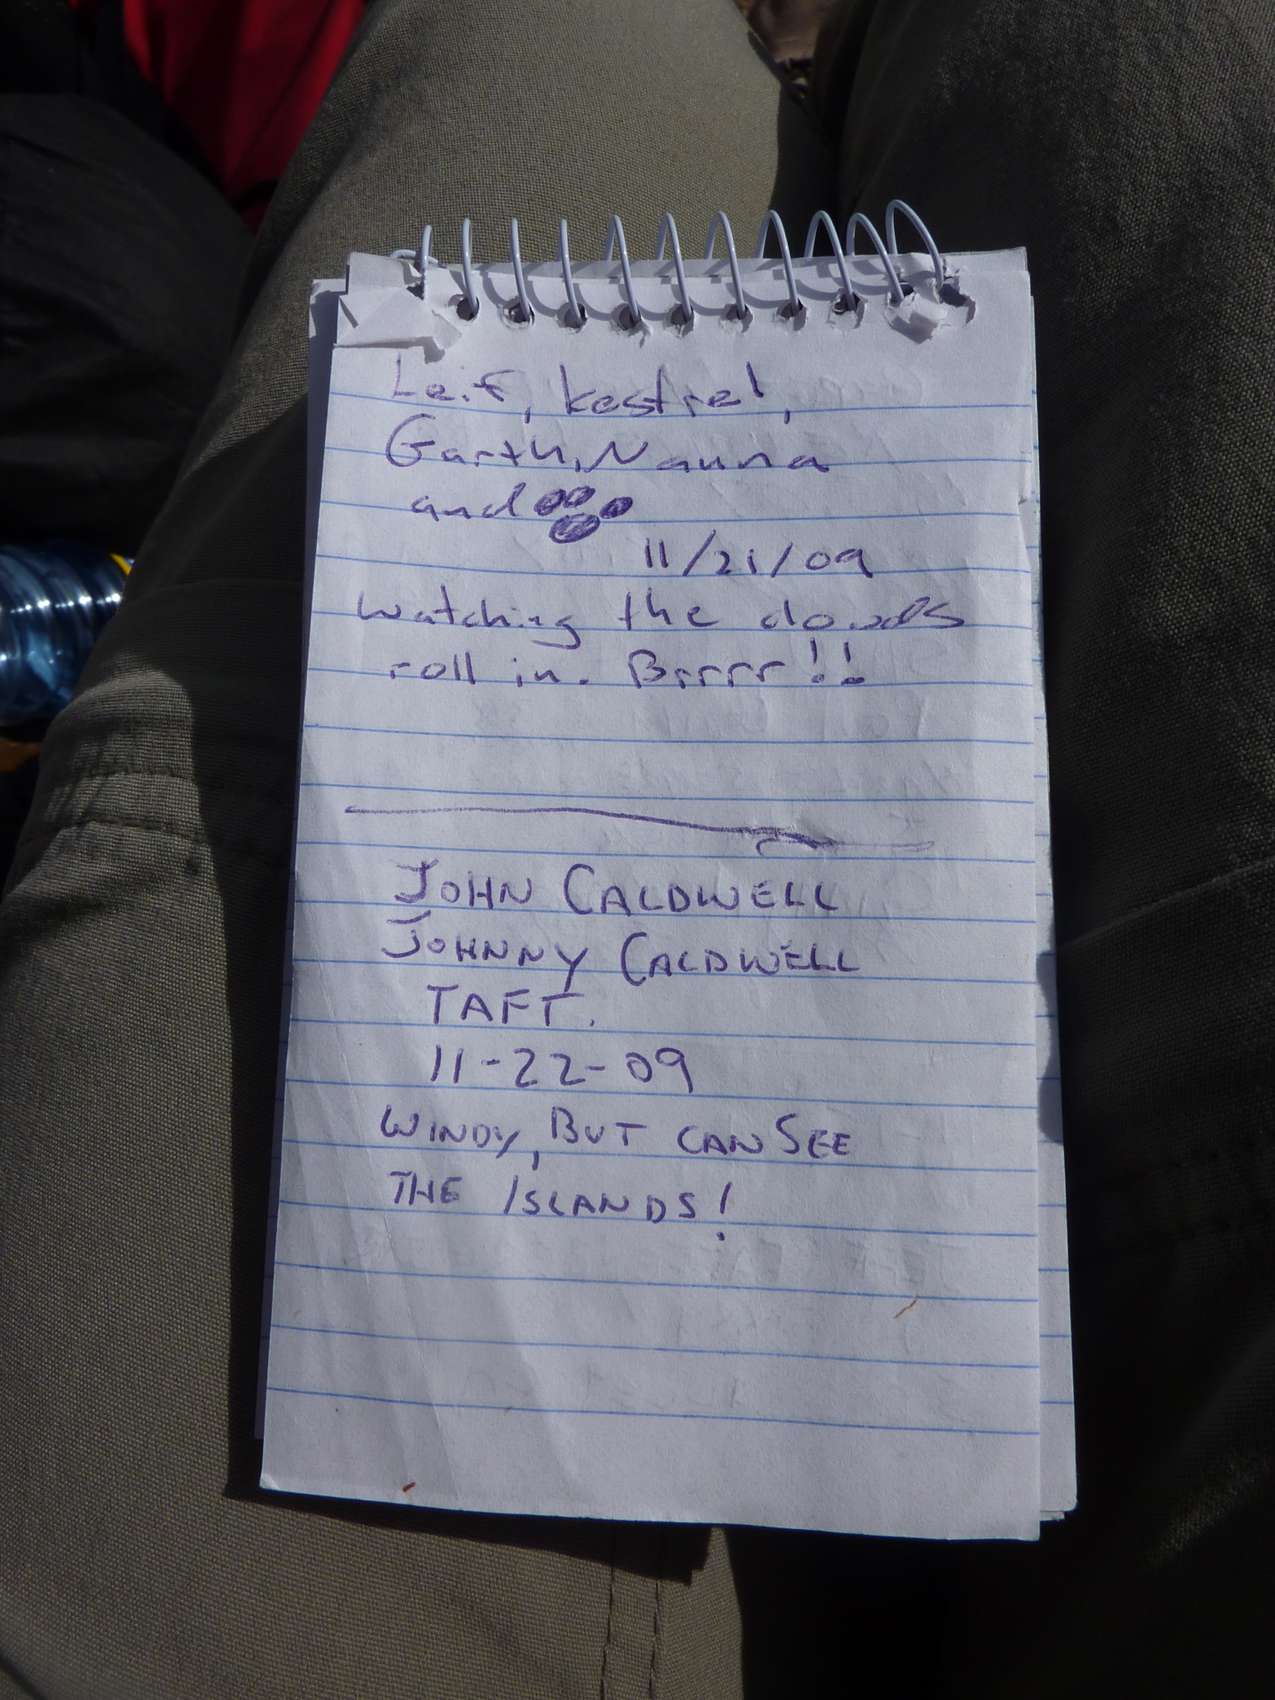 Leif, Kestrel,
Garth, Nauna
and
11/21/09
Watching the clouds
roll in. Brrrr!!
JOHN CALDWELL
JOHNNY CALDWELL
TAFT.
11-22-09
WINDY, BUT CAN SEE
THE ISLANDS!